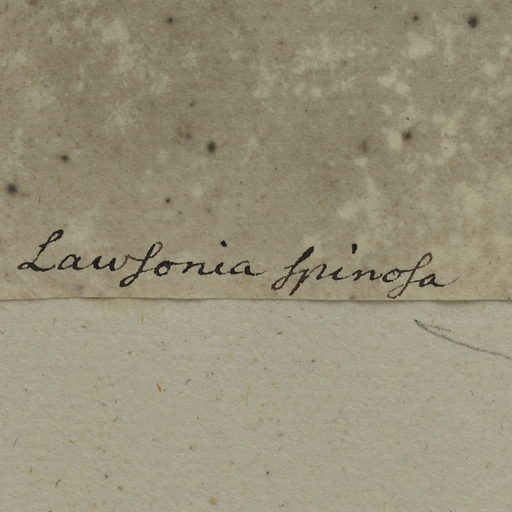 Lawſonia ſpinoſa